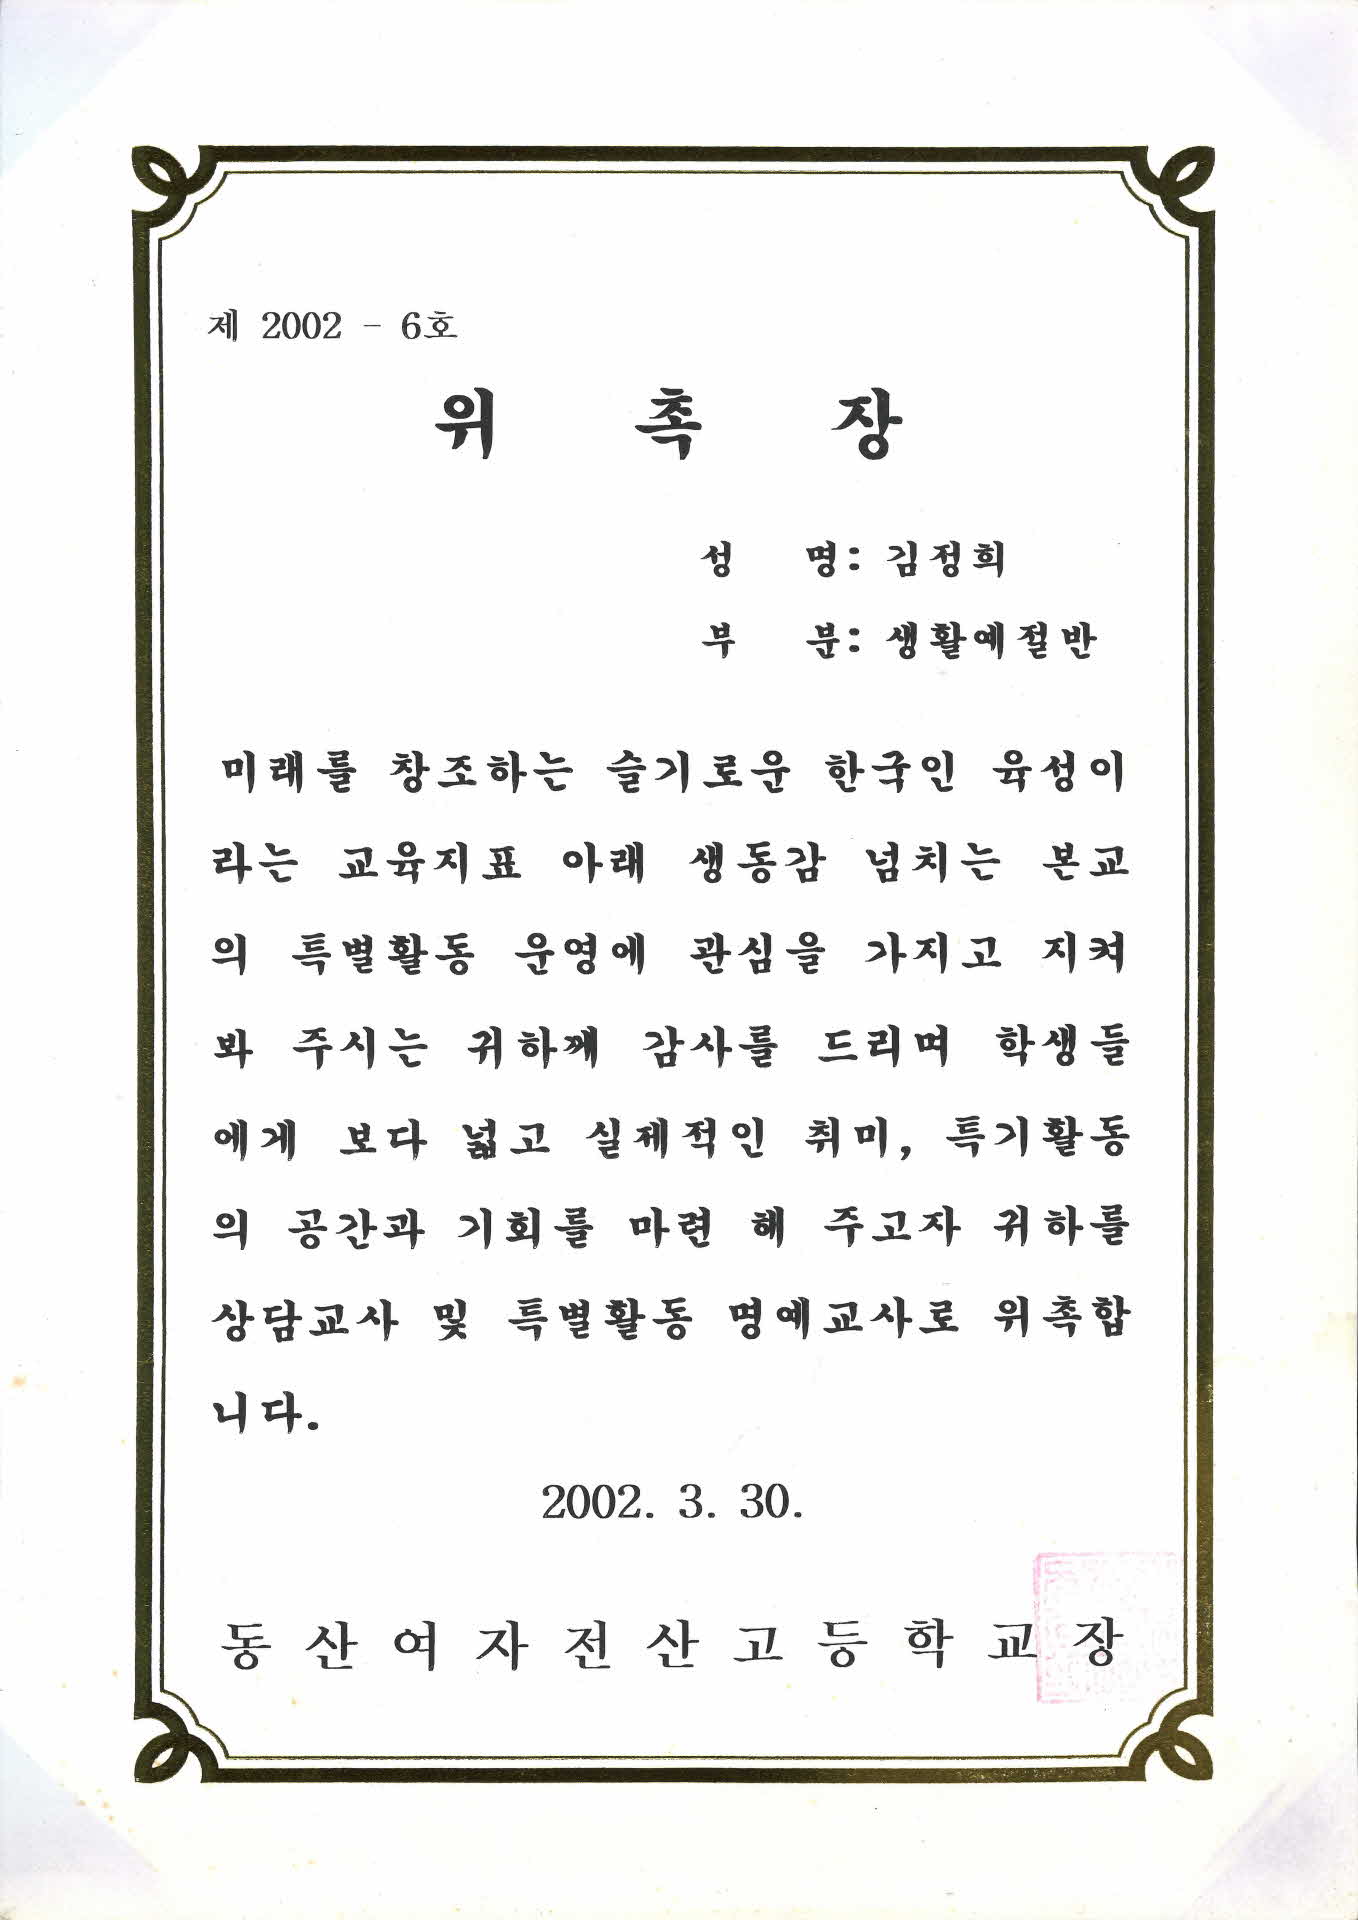 제 2002 - 6호
위 촉 장
성 명: 김정희
부 분: 생활예절반
미래를 창조하는 슬기로운 한국인 육성이
라는 교육지표 아래 생동감 넘치는 본교
의 특별활동 운영에 관심을 가지고 지켜
봐 주시는 귀하께 감사를 드리며 학생들
에게 보다 넓고 실제적인 취미, 특기활동
의 공간과 기회를 마련 해 주고자 귀하를
상담교사 및 특별활동 명예교사로 위촉합
니다.
2002. 3. 30.
동산여자전산고등학교장